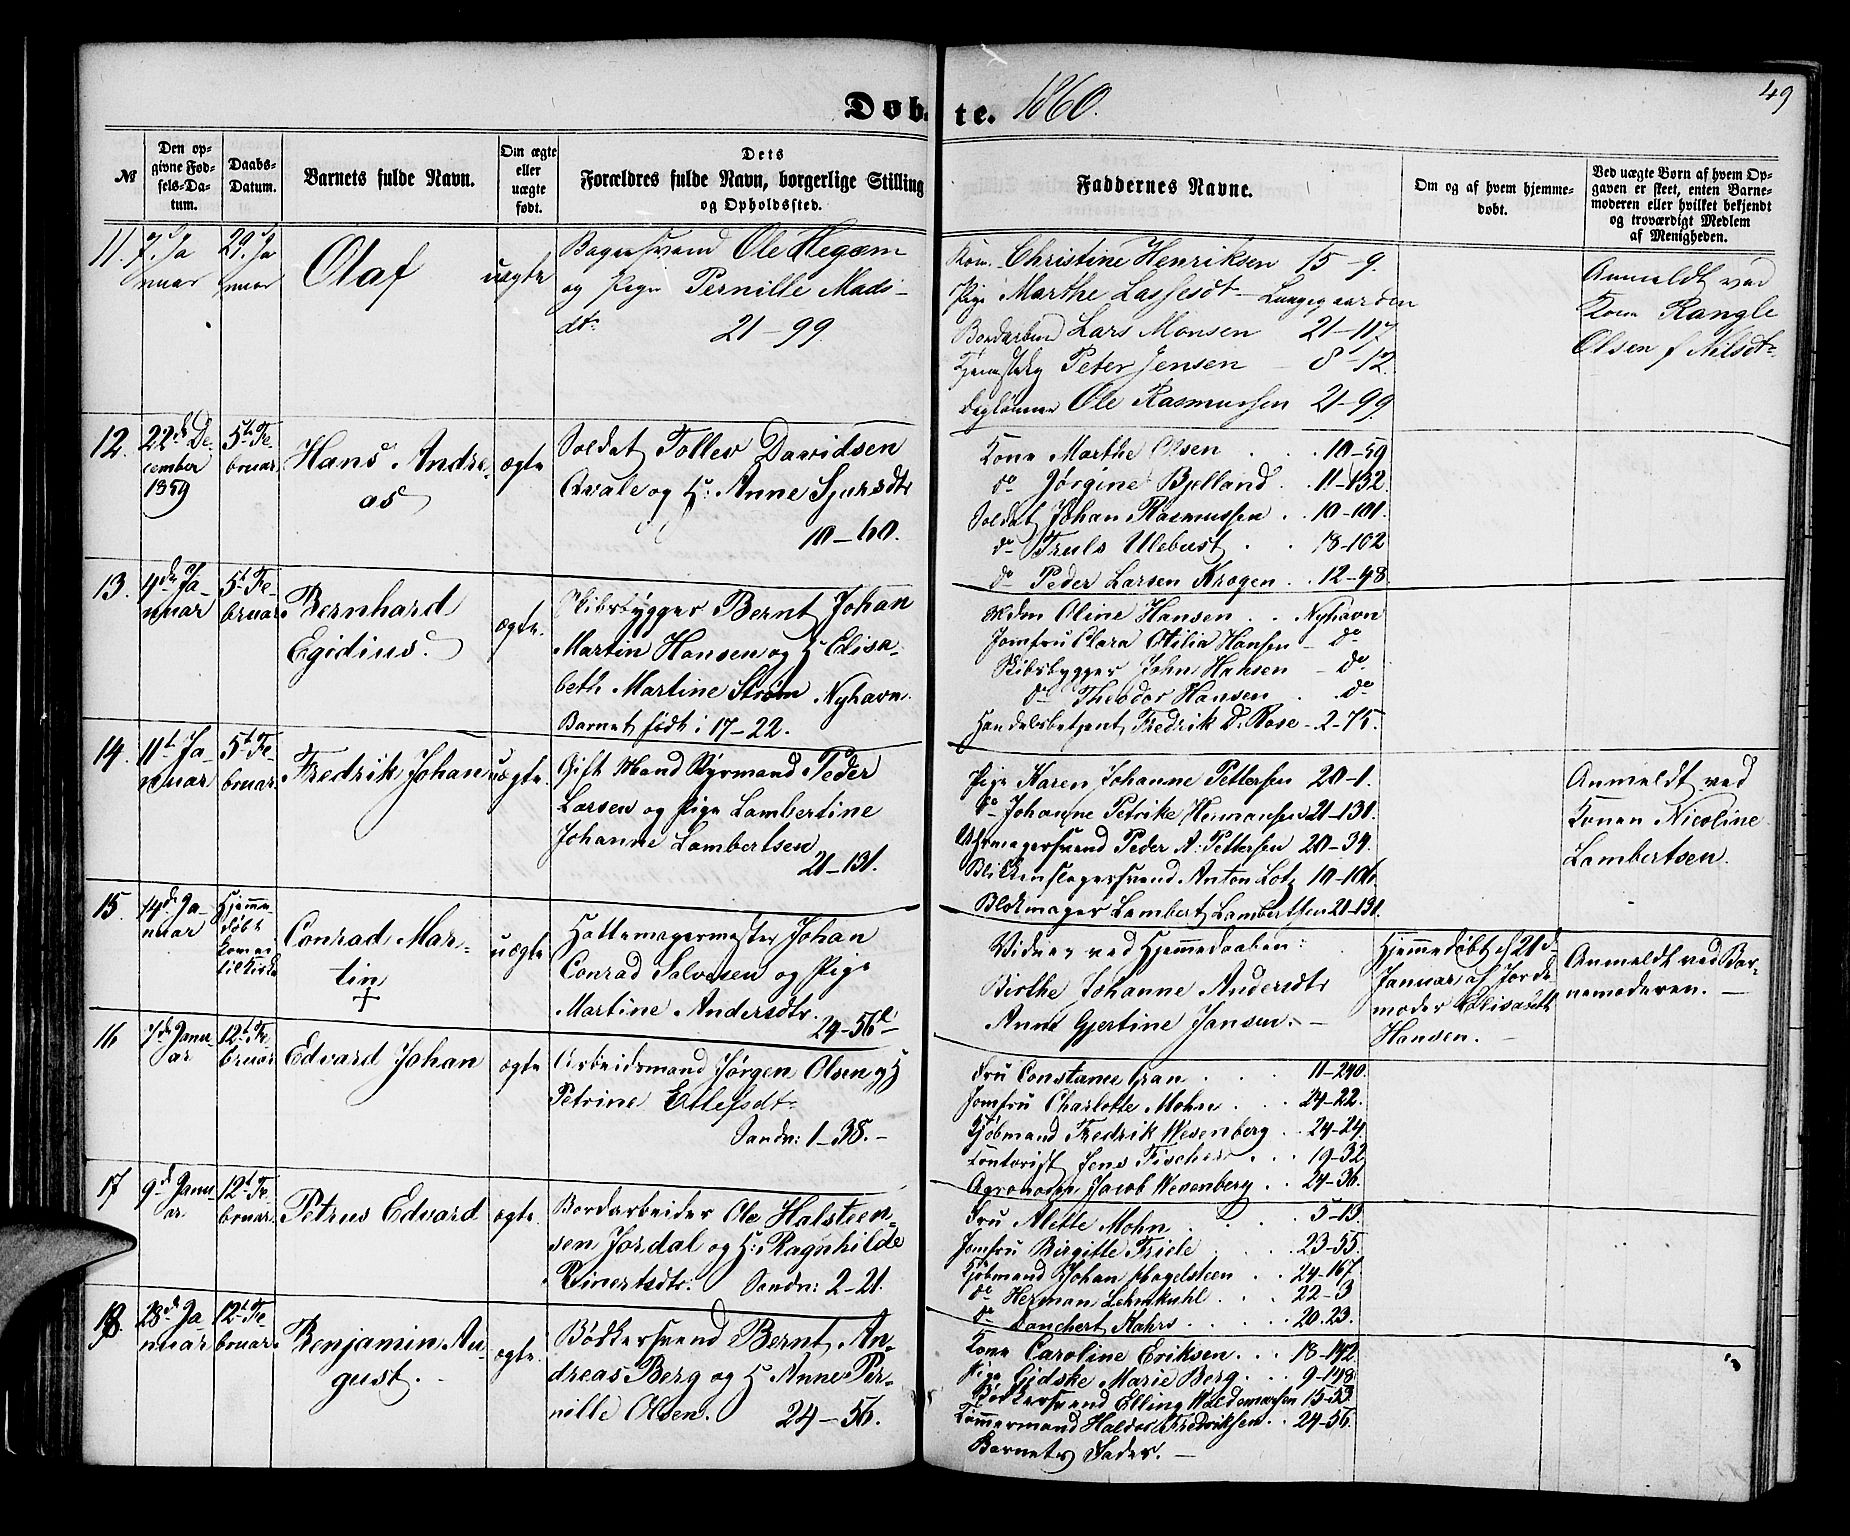 Døbte. 1860.
49
№
Den op-
givne Fød-
sels-Da-
tum.
Daabs-
Datum.
Barnets fulde Navn.
Om ægte
eller
uægte
født.
Dets
Forældres fulde Navn, borgerlige Stilling
og Opholdssted.
Faddernes Navne.
Om og af hvem hjemme-
døbt.
Ved uægte Børn af hvem Op-
gaven er skeet, enten Barne-
moderen eller hvilket bekjendt
og troværdigt Medlem
af Menigheden.
11. 7. Ja
nuar
29. Ja
nuar
Olaf
uægte
Bagersvend Ole Hegæm
og Pige Pernille Mads-
dtr 21-99.
Kone Christine Henriksen 15-9.
Pige Marthe Lassesdt- Lungegaarden
Bordarbeid Lars Monsen 21-117.
Peter Jensen 8-12.
Daglønner Ole Rasmussen 21-99
Anmeldt ved
Kone Rangle
Olsen f Nilsdt
12. 22d De-
cember
1859
5te Fe-
bruar
Hans Andre-
as
ægte
Soldat Tollev Davidsen
Qvale og H: Anne Sjursdtr
10-60.
Kone Marthe Olsen 10-59
do Jørgine Bjelland 11-132.
Soldat Johan Rasmussen 10-101.
do Truls Ulebust 18-102
do Peder Larsen Krogen 12-48.
13. 4de Ja-
nuar
5t Fe-
bruar
Bernhard
Egidius.
ægte.
Skibsbygger Bernt Johan
Martin Hansen og H Elisa-
beth Martine Strøm Nyhavn.
Barnet født i 17-22.
Mdm Oline Hansen Nyhavn
Jomfru Clara Otilia Hansen - do
Skibsbygger John Hansen - do
do Theodor Hansen do
Handelsbetjent Fredrik D. Rose - 2-75.
14. 11t Ja-
nuar
5t Fe-
bruar
Fredrik Johan
uægte.
Gift Mand Styrmand Peder
Larsen og Pige Lambertine
Johanne Lambertsen
21-131.
Pige Karen Johanne Pettersen 20-1.
do Johanne Petrike Hermansen 21-131.
Uhrmagersvend Peder A. Pettersen 20-34.
Blikkenslagersvend Anton Lotz 10-106
Blokmager Lambert Lambertsen 21-131.
Anmeldt ved
Konen Nicoline
Lambertsen.
15. 14d Ja-
nuar
Hjemme
døbt
kom ei
til Kirke
Conrad Mar-
tin
uægte
Hattemagermester Johan
Conrad Salvesen og Pige
Martine Andersdtr.
24-56
Vidner ved Hjemmedaaben:
Birthe Johanne Andersdtr
Anne Gjertine Jansen. -
Hjemmedøbt d 21 d
Januar af Jorde
moder Elisabeth
Hansen. -
Anmeldt ved Bar-
nemoderen. -
16 7d Janu-
ar
12t Fe-
bruar
Edvard Johan
ægte
Arbeidsmand Jørgen Olsen og H
Petrine Ellefsdt
Sandv: 1-38. -
Fru Constance Gran 11-240.
Jomfru Charlotte Mohn 24-22.
Kjøbmand Fredrik Wesenberg 24-24
Kontorist Jens Fischer 19-32
Jacob Wesenberg 24-36.
17 9d Janu-
ar
12t Fe-
bruar
Petrus Edvard
ægte.
Bordarbeider Ole Halsteen-
sen Jordal og H: Ragnhilde
Reinertsdtr. Sandv: 2-21.
Fru Alette Mohn 5-13.
Jomfru Birgitte Friele 23-55.
Kjøbmand Johan Hagelsteen 24-167
do Herman Lehmkuhl 22-3
do Danchert Kahrs 20.23.
18. 28d Ja-
nuar
12t Fe-
bruar.
Benjamin Au-
gust.
ægte.
Bødkersvend Bernt An-
dreas Berg og H Anne Per-
nille Olsen. 24-56.
Kone Caroline Eriksen 18-142
Pige Gidske Marie Berg 9-148
Bødkersvend Elling Waldemarsen 15-53
Tømmermand Haldor Fredriksen 24-56.
Barnets Fader. -